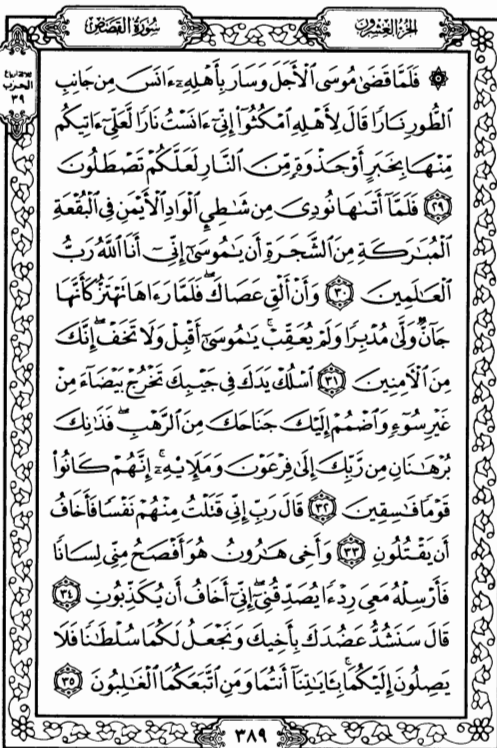 سُورَةُ القَصَصِ
الجُزْءُ العِشْرُونَ
الحزب
٣٩
۞ فَلَمَّا قَضَىٰ مُوسَى ٱلْأَجَلَ وَسَارَ بِأَهْلِهِۦٓ ءَانَسَ مِن جَانِبِ
ٱلطُّورِ نَارًا قَالَ لِأَهْلِهِ ٱمْكُثُوٓا۟ إِنِّىٓ ءَانَسْتُ نَارًا لَّعَلِّىٓ ءَاتِيكُم
مِّنْهَا بِخَبَرٍ أَوْ جَذْوَةٍ مِّنَ ٱلنَّارِ لَعَلَّكُمْ تَصْطَلُونَ
٢٩ فَلَمَّآ أَتَىٰهَا نُودِىَ مِن شَـٰطِئِ ٱلْوَادِ ٱلْأَيْمَنِ فِى ٱلْبُقْعَةِ
ٱلْمُبَـٰرَكَةِ مِنَ ٱلشَّجَرَةِ أَن يَـٰمُوسَىٰٓ إِنِّىٓ أَنَا ٱللَّهُ رَبُّ
ٱلْعَـٰلَمِينَ ٣٠ وَأَنْ أَلْقِ عَصَاكَ ۖ فَلَمَّا رَءَاهَا تَهْتَزُّ كَأَنَّهَا
جَآنٌّ وَلَّىٰ مُدْبِرًا وَلَمْ يُعَقِّبْ ۚ يَـٰمُوسَىٰٓ أَقْبِلْ وَلَا تَخَفْ ۖ إِنَّكَ
مِنَ ٱلْـَٔامِنِينَ ٣١ ٱسْلُكْ يَدَكَ فِى جَيْبِكَ تَخْرُجْ بَيْضَآءَ مِنْ
غَيْرِ سُوٓءٍ وَٱضْمُمْ إِلَيْكَ جَنَاحَكَ مِنَ ٱلرَّهْبِ ۖ فَذَٰنِكَ
بُرْهَـٰنَانِ مِن رَّبِّكَ إِلَىٰ فِرْعَوْنَ وَمَلَإِي۟هِۦٓ ۚ إِنَّهُمْ كَانُوا۟
قَوْمًا فَـٰسِقِينَ ٣٢ قَالَ رَبِّ إِنِّى قَتَلْتُ مِنْهُمْ نَفْسًا فَأَخَافُ
أَن يَقْتُلُونِ ٣٣ وَأَخِى هَـٰرُونُ هُوَ أَفْصَحُ مِنِّى لِسَانًا
فَأَرْسِلْهُ مَعِىَ رِدْءًا يُصَدِّقُنِىٓ ۖ إِنِّىٓ أَخَافُ أَن يُكَذِّبُونِ ٣٤
قَالَ سَنَشُدُّ عَضُدَكَ بِأَخِيكَ وَنَجْعَلُ لَكُمَا سُلْطَـٰنًا فَلَا
يَصِلُونَ إِلَيْكُمَا ۚ بِـَٔايَـٰتِنَآ أَنتُمَا وَمَنِ ٱتَّبَعَكُمَا ٱلْغَـٰلِبُونَ ٣٥
٣٨٩